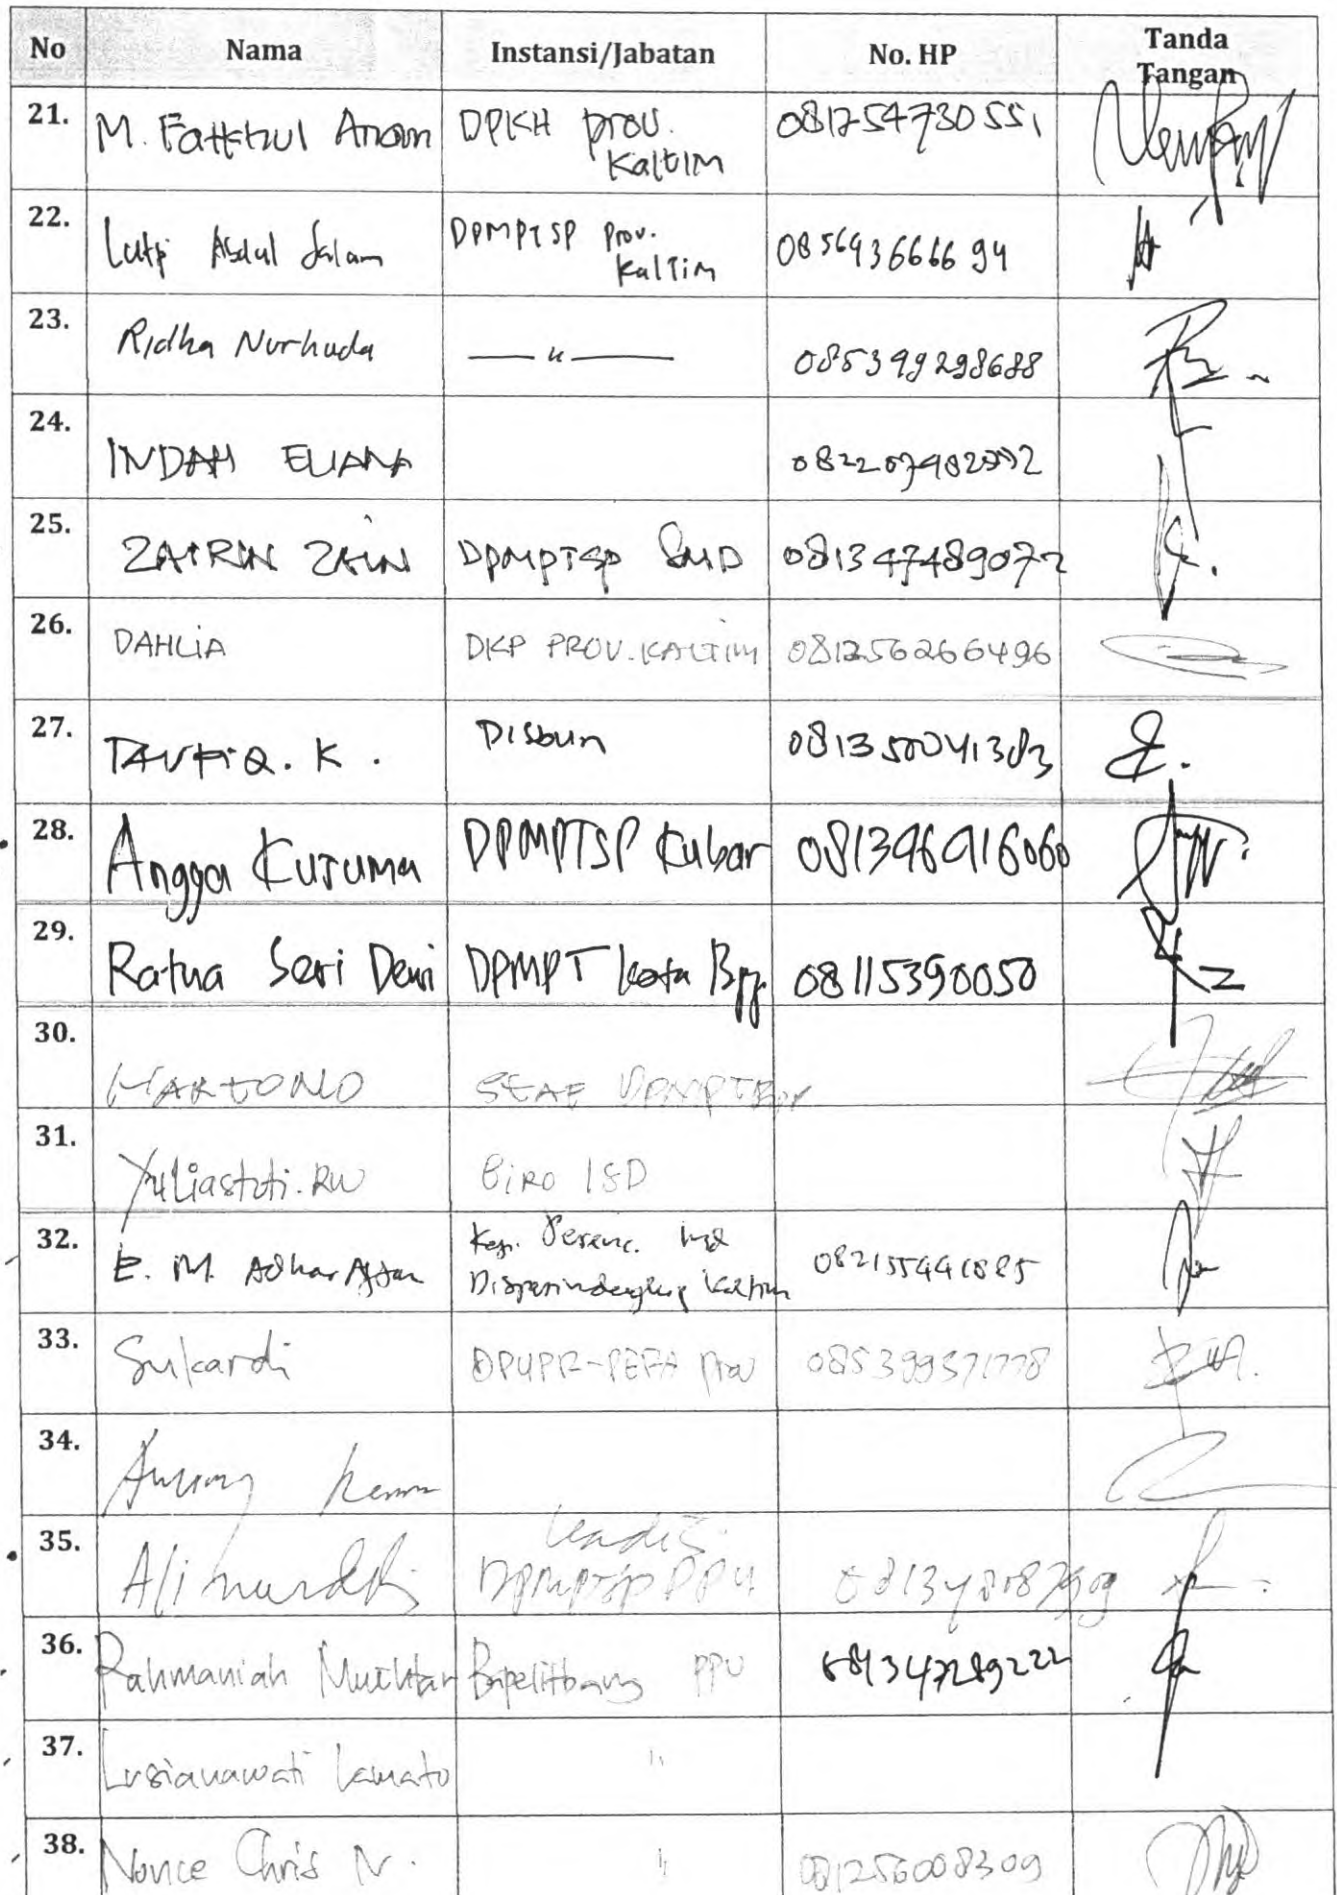 No Nama Instansi/Jabatan No. HP Tanda Tangan
21. M. Fattkhul Anam DPKH prov. Kaltim 081254730551
22. Lutfi Abdul Salam DPMPTSP Prov. Kaltim 085693666694
23. Ridha Nurhuda — " — 085399298688
24. INDAH ELIANA
25. ZAIRIN ZAIN DPMPTSP SMD 081347489072
26. DAHLIA DKP PROV. KALTIM 081256266496
27. TAUFIQ. K. Disbun 081350041383
28. Angga Kusuma DPMPTSP Kubar 081396916060
29. Ratna Sari Dewi DPMPT Kota Bpp. 08115390050
30. HARTONO STAF
31. Yuliastuti. RW Biro ISD
32. E. M. Kaltim
33. Sukardi DPUPR-PERA Prov 085399371778
34.
35. DPMPTSP PPU
36. Rahmaniah Muchtar Bapelitbang PPU 081347289222
37. Lusianawati "
38. Nonce Chris N. " 081256008309